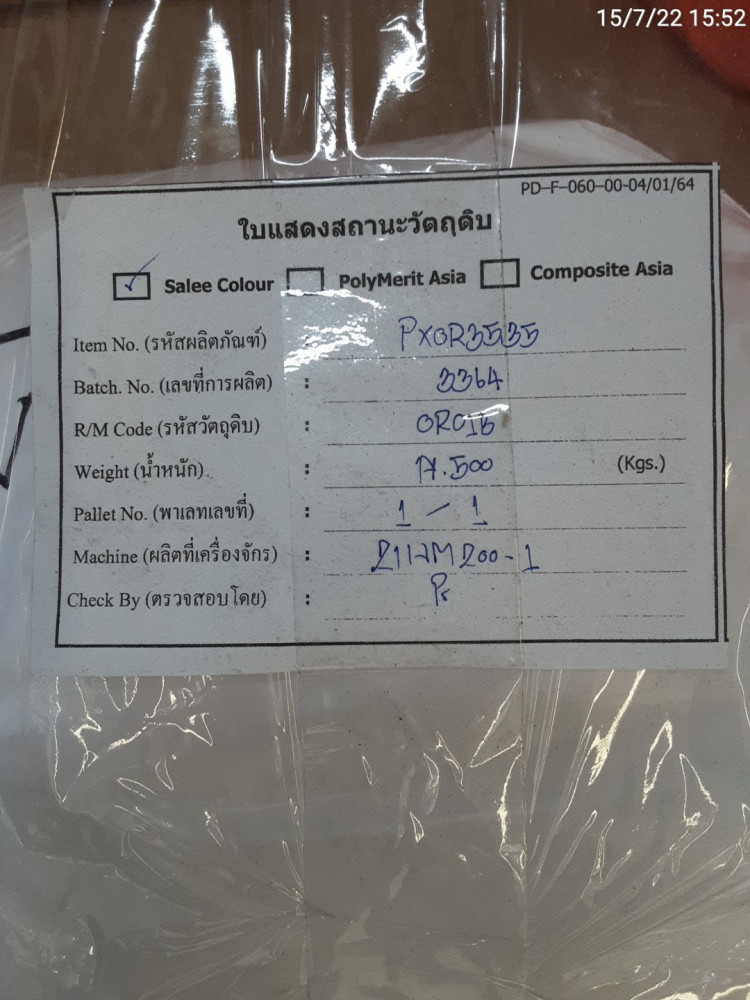 15/7/22 15:52
PD-F-060-00-04/01/64
ใบแสดงสถานะวัตถุดิบ
✓ Salee Colour PolyMerit Asia Composite Asia
Item No. (รหัสผลิตภัณฑ์) PXOR3535
Batch. No. (เลขที่การผลิต) : 3364
R/M Code (รหัสวัตถุดิบ) :
Weight (น้ำหนัก). : 17.500 (Kgs.)
Pallet No. (พาเลทเลขที่) : 1 - 1
Machine (ผลิตที่เครื่องจักร) :
Check By (ตรวจสอบโดย) :